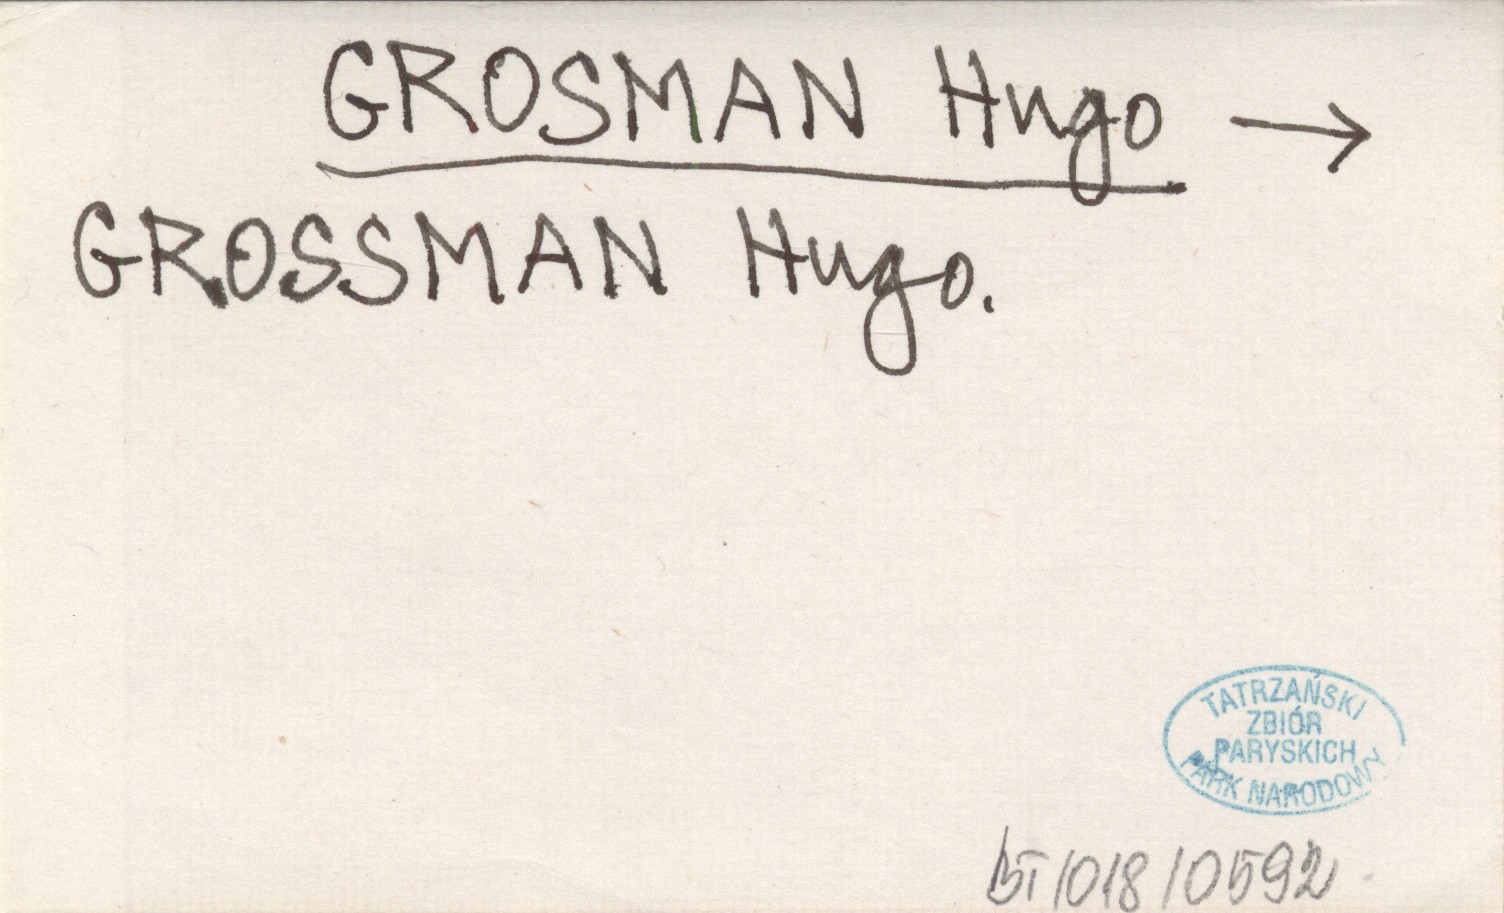 GROSMAN Hugo →
GROSSMAN Hugo.
TATRZAŃSKI
ZBIÓR
PARYSKICH
PARK NARODOWY
BT/018/0592